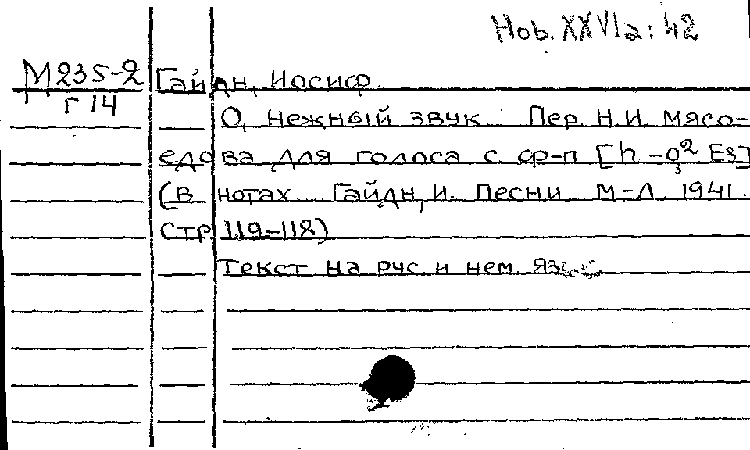 Hob. XXVIa: 42
М235-2 Гайдн, Иосиф.
Г 14
О, нежный звук. Пер. Н.И. Мясо-
едова для голоса с ф-п [h - g² Es]
(в нотах Гайдн, И. Песни М-Л. 1941.
Стр 119-118)
Текст на рус и нем. яз.